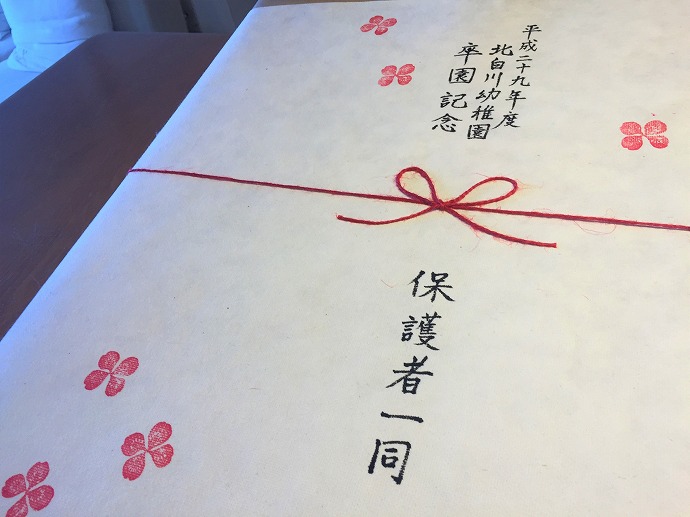 平成二十九年度
北白川幼稚園
卒園記念
保護者一同